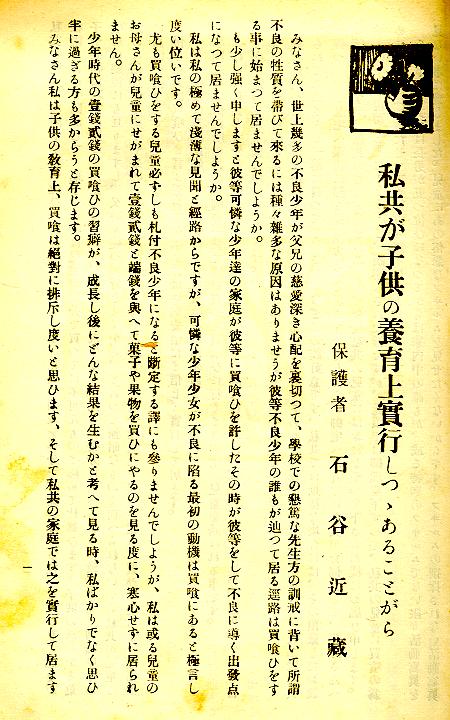 私共が子供の養育上實行しつゝあることがら
保護者 石谷近藏
みなさん、世上幾多の不良少年が父兄の慈愛深き心配を裏切つて、學校での懇篤な先生方の訓戒に背いて所謂
不良の性質を帶びて來るには種々雜多な原因はありませうが彼等不良少年の誰もが辿つて居る逕路は買喰ひをす
る事に始まつて居ませんでしようか。
も少し强く申しますと彼等可憐な少年達の家庭が彼等に買喰ひを許したその時が彼等をして不良に導く出發點
になつて居ませんでしようか。
私は私の極めて淺薄な見聞と經路からですが、可憐な少年少女が不良に陷る最初の動機は買喰にあると極言し
度い位いです。
尤も買喰ひをする兒童必ずしも札付不良少年になると斷定する譯にも參りませんでしようが、私は或る兒童の
お母さんが兒童にせがまれて壹錢貳錢と端錢を與へて菓子や果物を買ひにやるのを見る度に、寒心せずに居られ
ません。
少年時代の壹錢貳錢の買喰ひの習癖が、成長し後にどんな結果を生むかと考へて見る時、私ばかりでなく思ひ
半に過ぎる方も多からうと存じます。
みなさん私は子供の敎育上、買喰は絕對に排斥し度いと思ひます、そして私共の家庭では之を實行して居ます
一